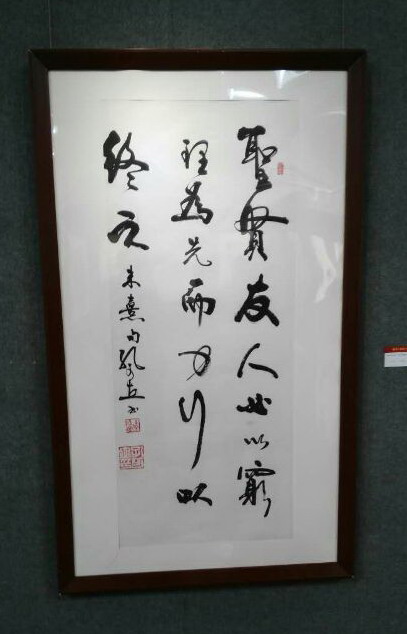 聖賢教人必以窮
理為先而力行以
終之
朱熹句 書